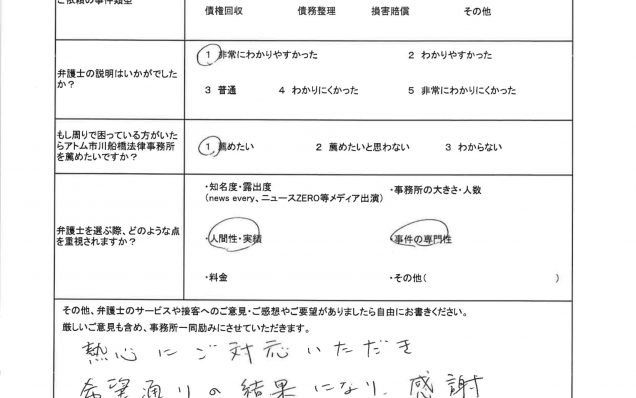 ご依頼の事件類型
債権回収 債務整理 損害賠償 その他
弁護士の説明はいかがでしたか？
1 非常にわかりやすかった 2 わかりやすかった
3 普通 4 わかりにくかった 5 非常にわかりにくかった
もし周りで困っている方がいたらアトム市川船橋法律事務所を薦めたいですか？
1 薦めたい 2 薦めたいと思わない 3 わからない
弁護士を選ぶ際、どのような点を重視されますか？
・知名度・露出度 ・事務所の大きさ・人数
(news every、ニュースZERO等メディア出演)
・人間性・実績 ・事件の専門性
・料金 ・その他( )
その他、弁護士のサービスや接客へのご意見・ご感想やご要望がありましたら自由にお書きください。
厳しいご意見も含め、事務所一同励みにさせていただきます。
熱心にご対応いただき
希望通りの結果になり、感謝